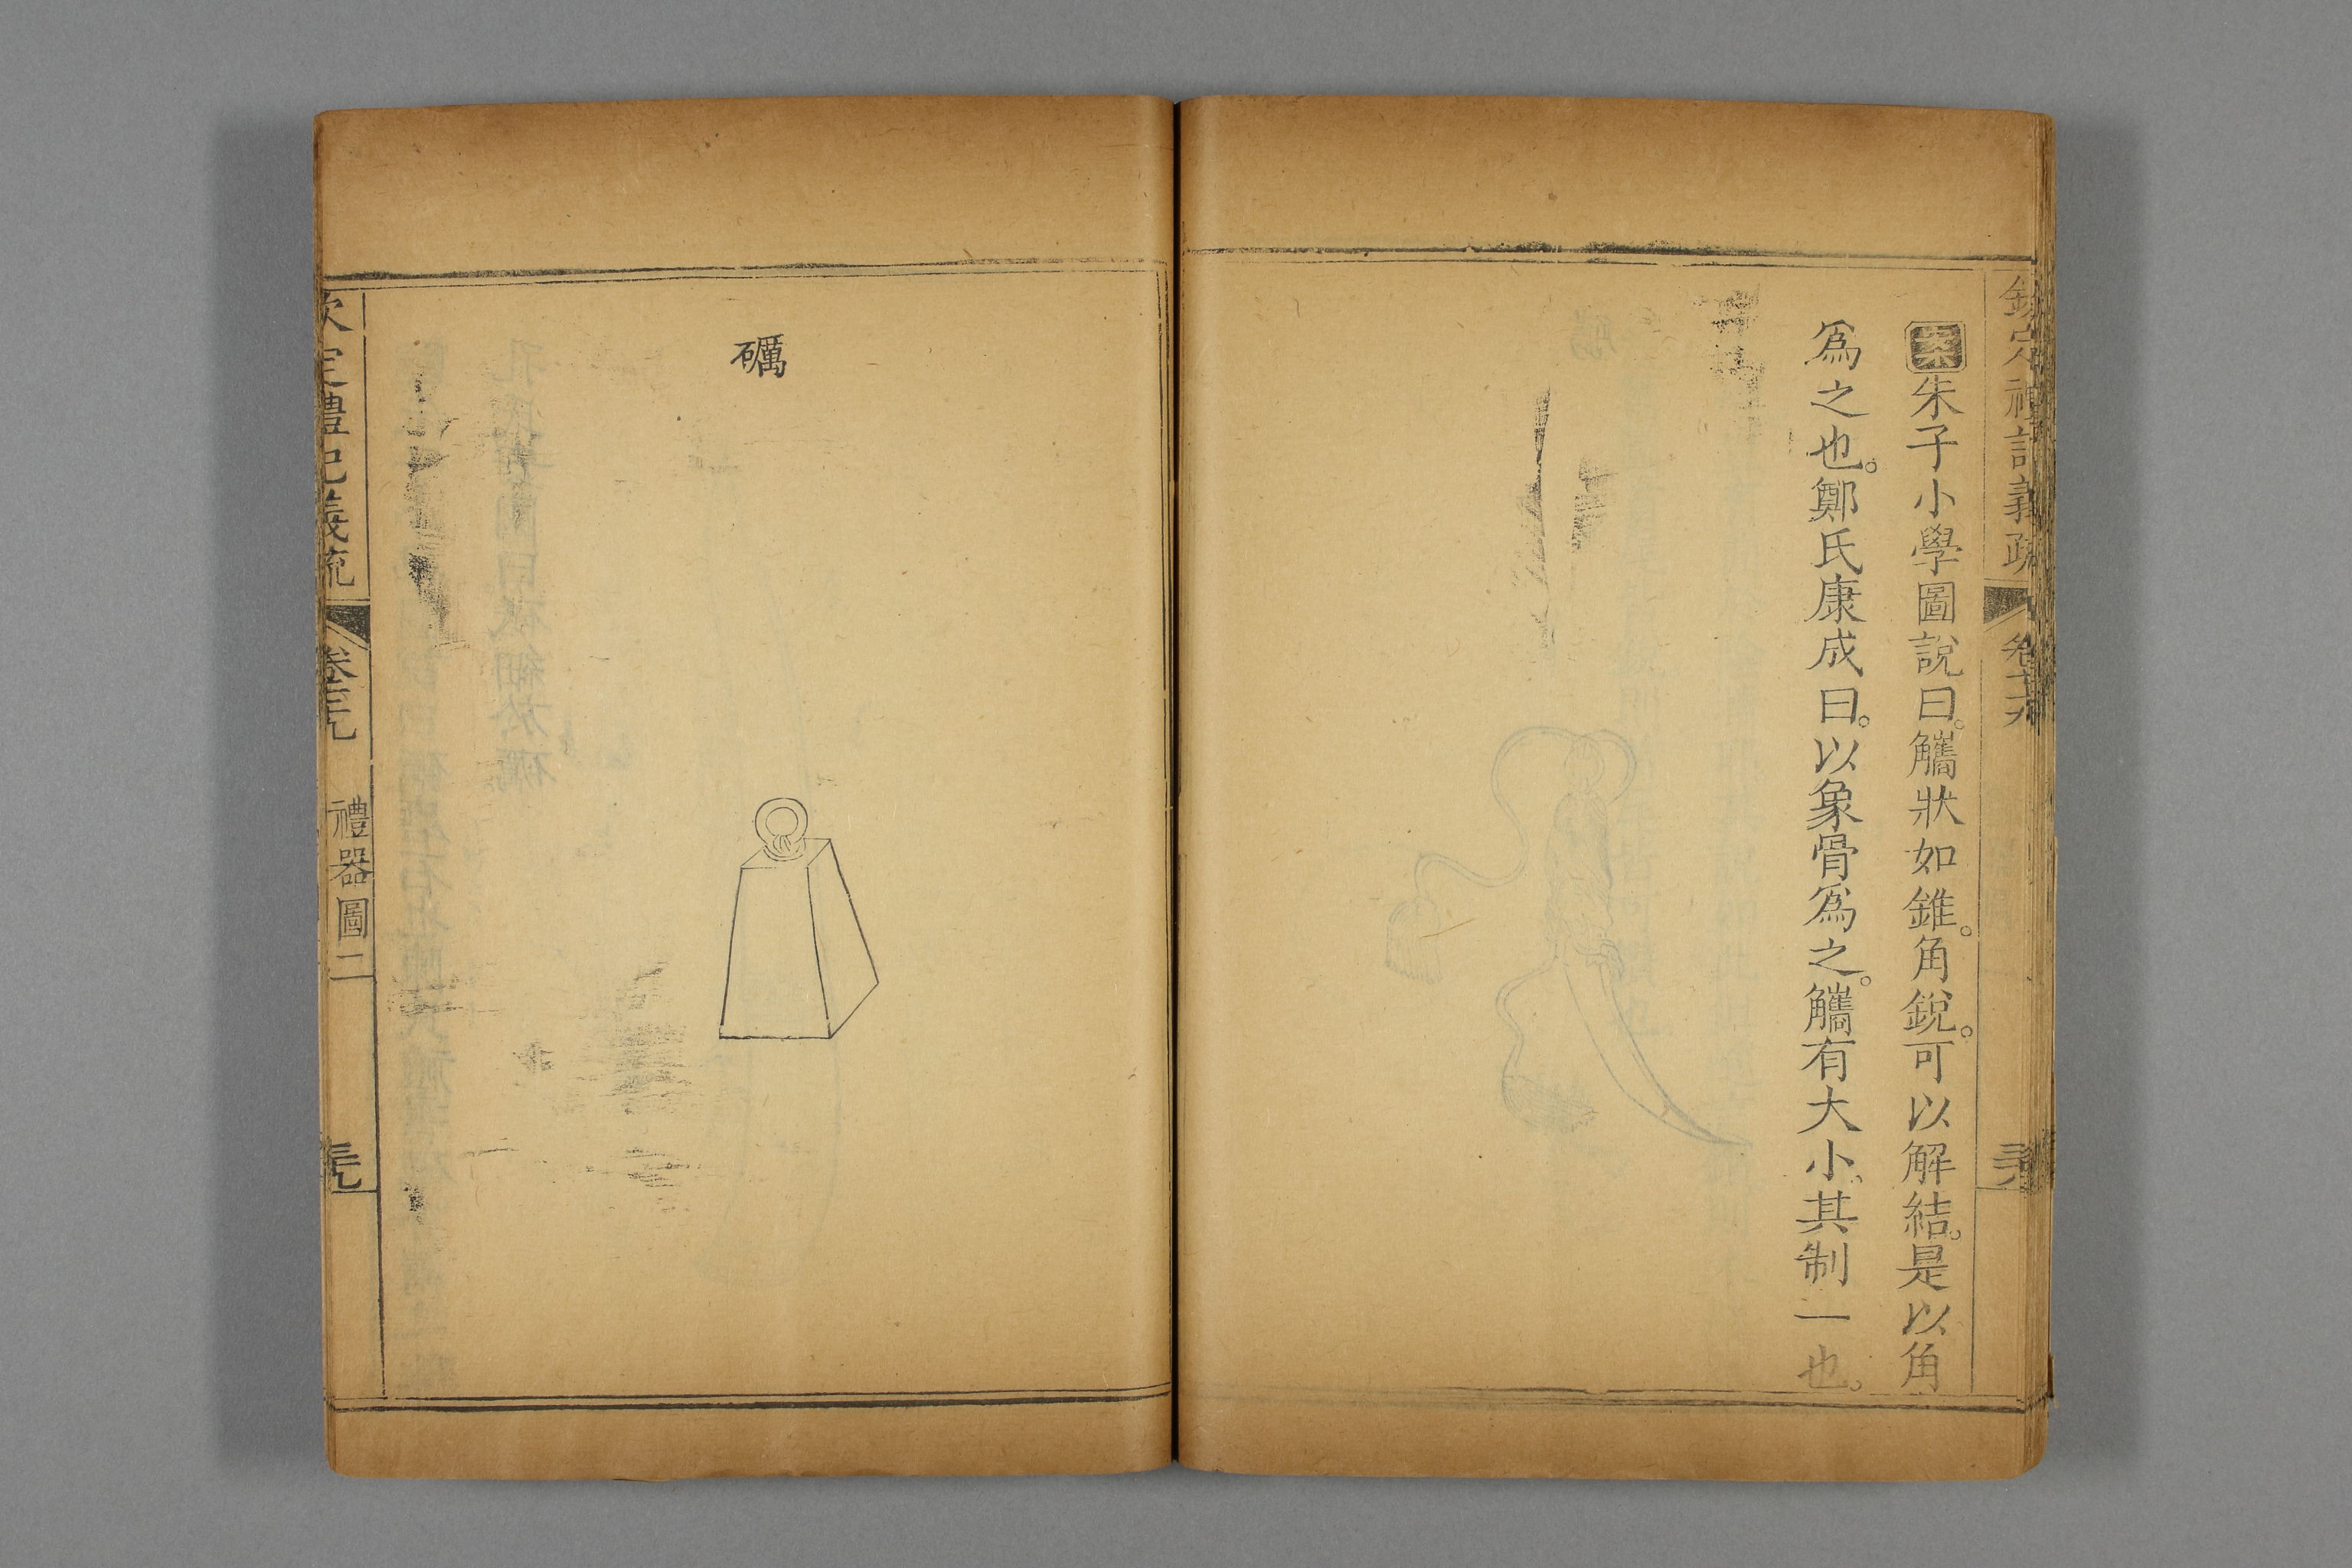 欽定禮記義疏
案朱子小學圖說曰。觿狀如錐。角銳。可以解結。是以角
爲之也。鄭氏康成曰。以象骨爲之。觿有大小。其制一也。
礪
欽定禮記義疏
禮器圖二